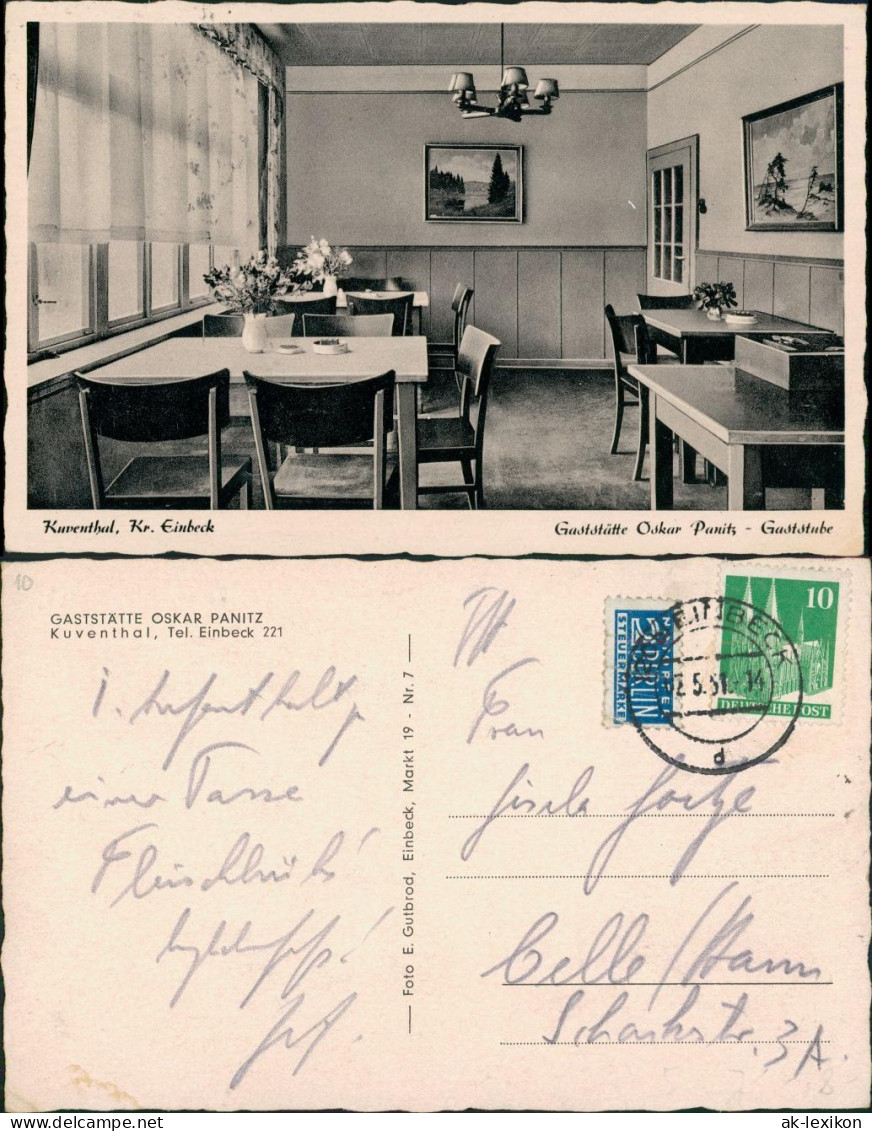 Kuventhal, Kr. Einbeck
Gaststätte Oskar Panitz - Gaststube
10
GASTSTÄTTE OSKAR PANITZ
Kuventhal, Tel. Einbeck 221
einer Tasse
Fleischbrüh'
Foto E. Gutbrod, Einbeck, Markt 19 - Nr. 7
NOTOPFER
2 BERLIN
STEUERMARKE
EINBECK
2.5.51.-14
d
10
DEUTSCHE POST
Frau
Gisela
Celle/Hann
3A.
ak-lexikon